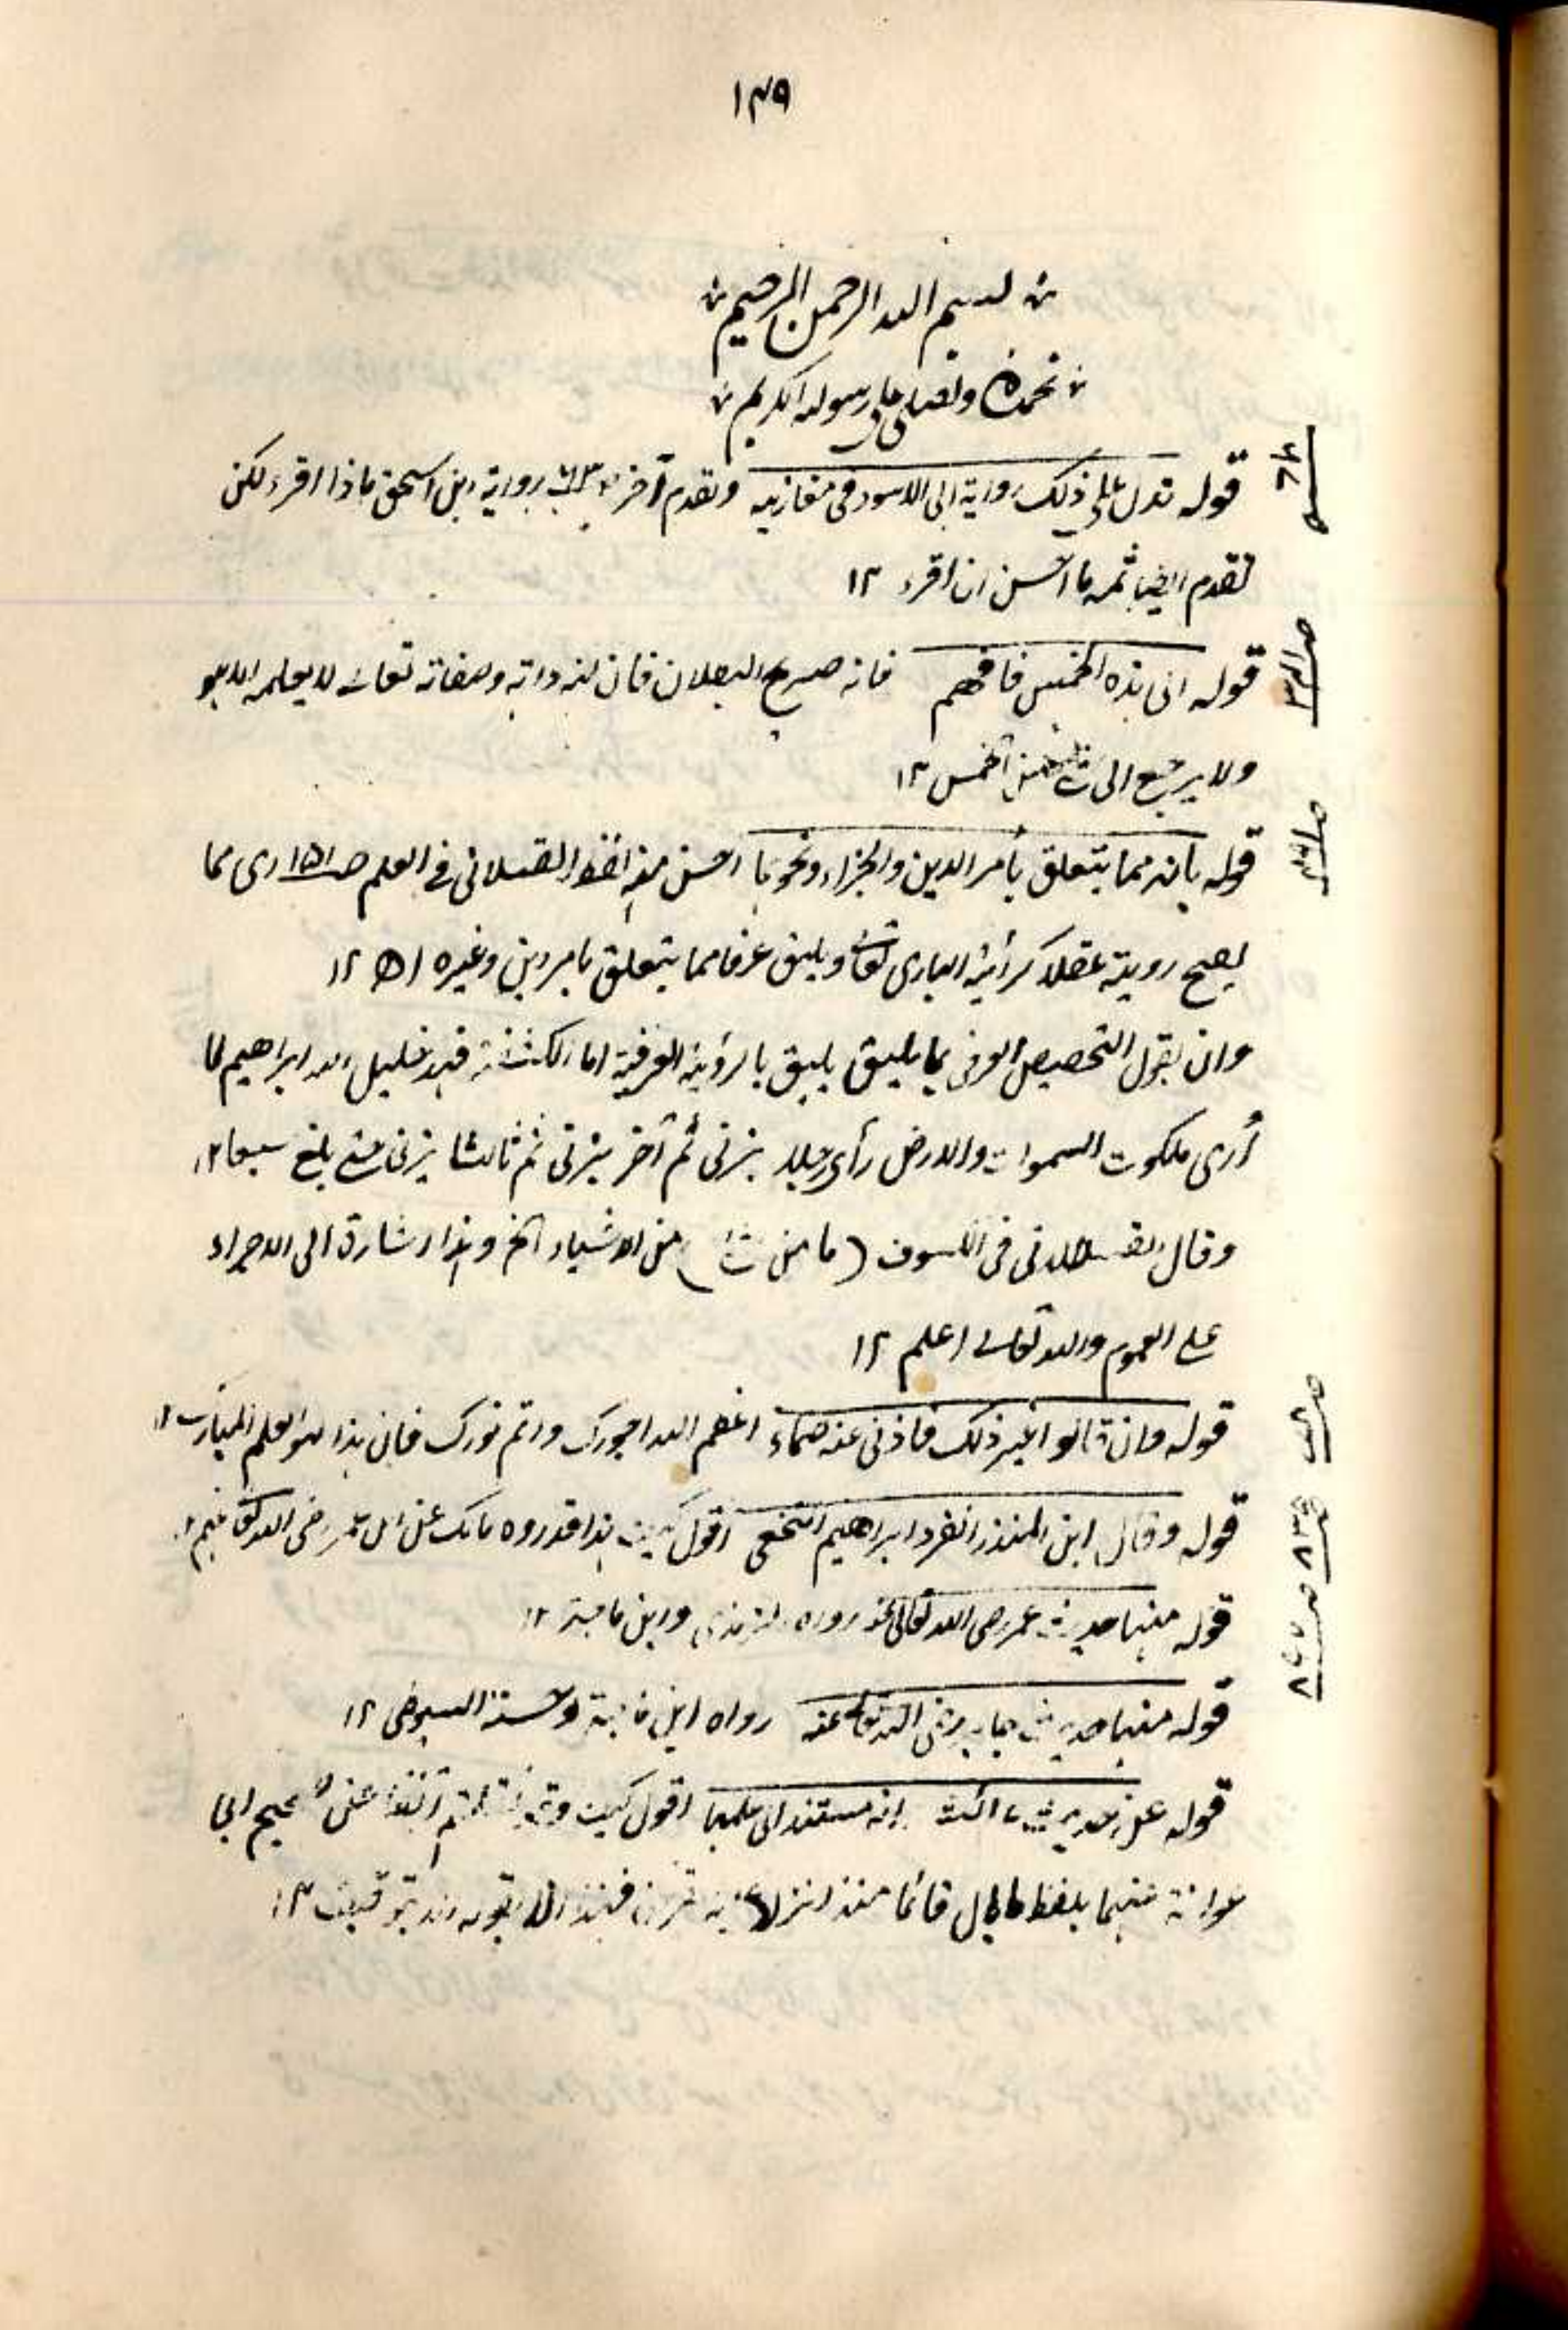 ١٣٩
بسم الله الرحمن الرحيم
نحمده ونصلی علی رسوله الکریم
قوله تدل علی ذلک روایة ابی الاسود فی مغازیه وتقدم آخر بروایة ابن اسحق ماذا اقرء لکن
تقدم ایضا ثمه ما احسن ان اقرء ١٢
قوله الی هذه الخمس فافهم فانه صریح البطلان فان کنه ذاته وصفاته تعالی لا یعلمه الا هو
ولا یرجع الی شئ من الخمس ١٢
قوله بانه مما یتعلق بأمر الدین والجزاء ونحوها احسن منه لفظ القسطلانی فی العلم صـ١٥١ ای مما
یصح رویته عقلا کرأیة الباری تعالی ویلیق عرفا مما یتعلق بامر دین وغیره اھ ١٢
وان یقول التخصیص العرفی بما یلیق یلیق بالرؤیة العرفیة اما الکشفیة فهذ خلیل الله ابراهیم لما
أری ملکوت السموات والارض رأی رجلا یزنی ثم آخر یزنی ثم ثالثا یزنی حتی بلغ سبعا ١٢
وقال القسطلانی فی الکسوف (ما من شئ) من الاشیاء الخ وهذا اشارة الی الاجراء
علی العموم والله تعالی اعلم ١٢
قوله وان قالوا غیر ذلک فاذنی عنه صماء اعظم الله اجورک واتم نورک فان هذا لهو العلم المبارک ١٢
قوله وقال ابن المنذر انفرد ابراهیم النخعی اقول کیف هذا قد روه مالک عن ابن عمر رضی الله تعالی عنهم ١٢
قوله منها حدیث عمر رضی الله تعالی عنه رواه الترمذی وابن ماجة ١٢
قوله منها حدیث جابر رضی الله تعالی عنه رواه ابن ماجة وحسنه السیوطی ١٢
قوله عن حدیث عائشة انه مستند الی علمها اقول کیف وقد عن صحیح ابی
عوانة عنها بلفظ ما بال قائما منذ انزل علیه القرآن فهذا ١٢